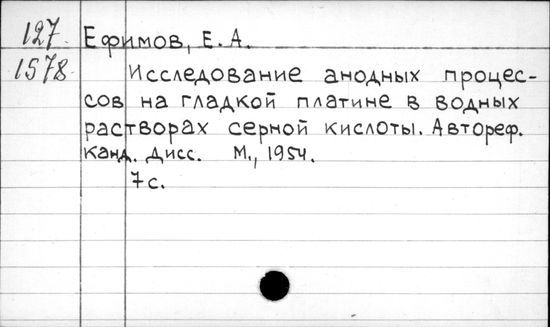 127 Ефимов, Е. А.
1578 Исследование анодных процес-
сов на гладкой платине в водных
растворах серной кислоты. Автореф.
Канд. дисс. М., 1954.
7 с.